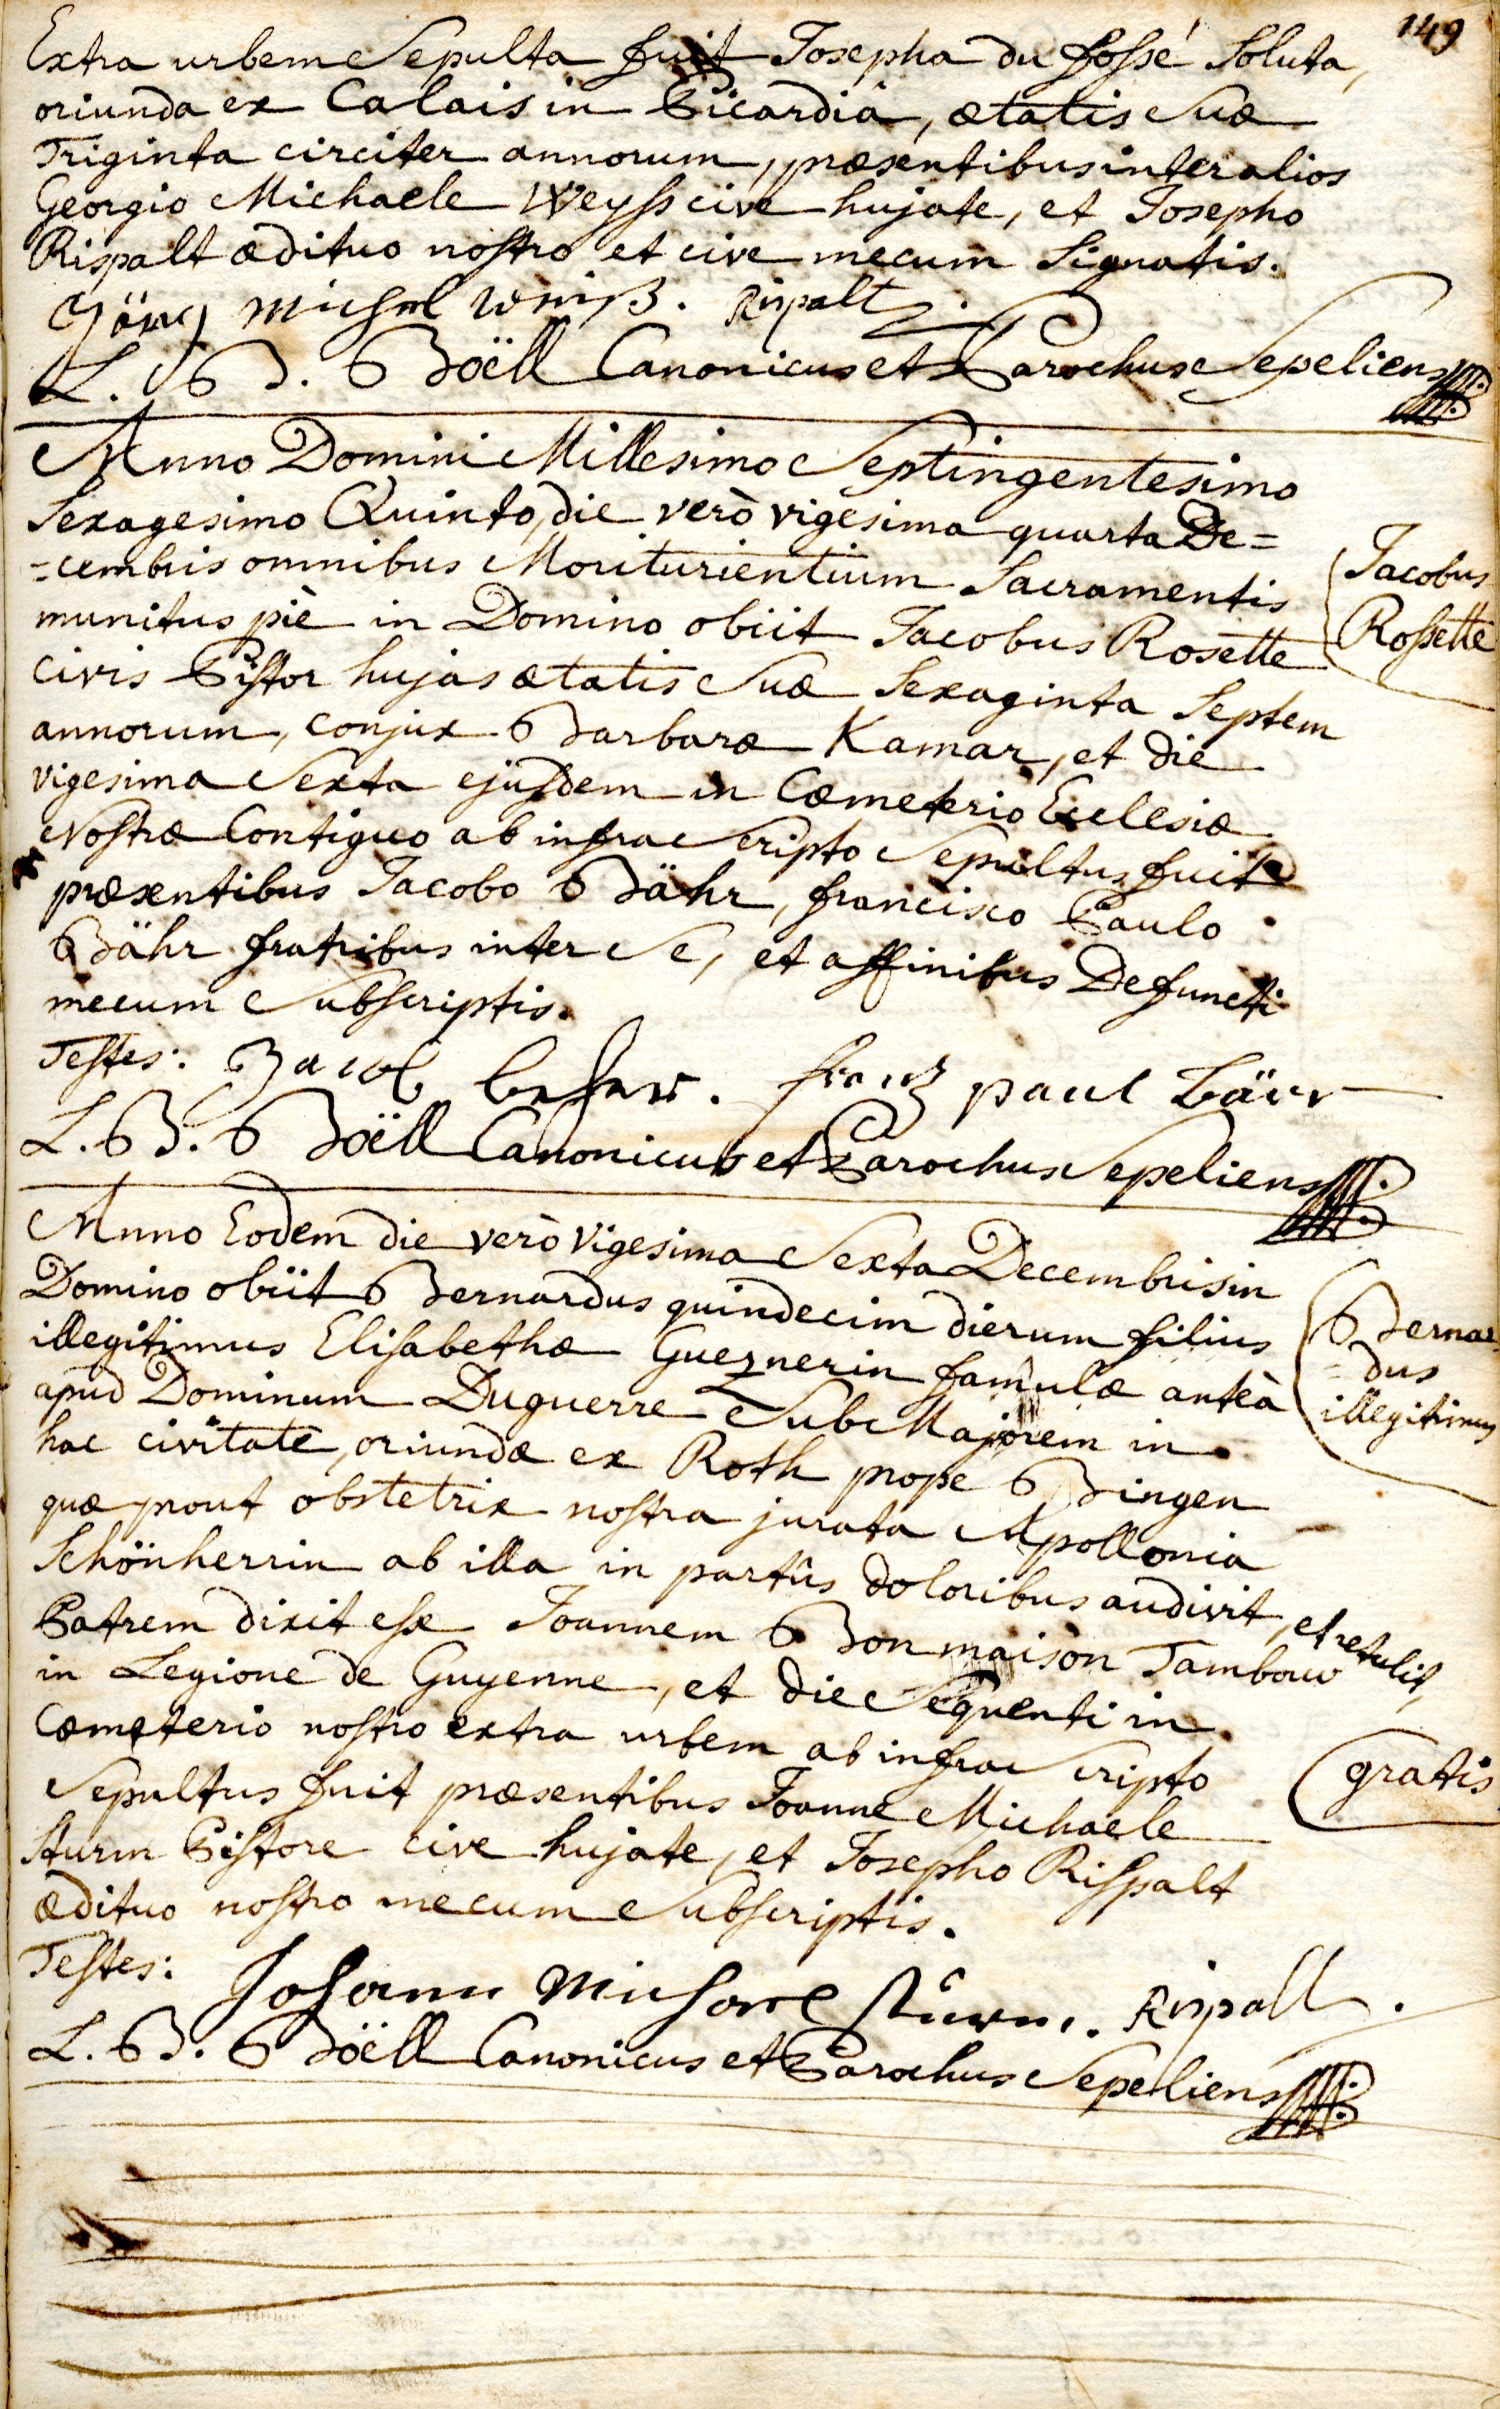 149
Extra urbem Sepulta fuit Josepha du fossé Soluta,
oriunda ex Calais in Picardiâ, ætatis Suæ
Triginta circiter annorum, præsentibus inter alios
Georgio Michaele Weyss cive hujate, et Josepho
Rispalt ædituo nostro et cive mecum Signatis.
Görg Michel Weiß. Rispalt.
L. B. Boëll Canonicus et Parochus Sepeliens
Anno Domini Millesimo Septingentesimo
Sexagesimo Quinto, die verò vigesima quarta De=
=cembris omnibus Moriturientium Sacramentis
munitus piè in Domino obiit Jacobus Rosette
Civis Pistor hujas ætatis Suæ Sexaginta Septem
annorum, conjux Barbaræ Kamar, et die
vigesima Sexta ejusdem in Cœmeterio Ecclesiæ
Nostræ Contiguo ab infra Scripto Sepultus fuit
præsentibus Jacobo Bähr, francisco Paulo
Bähr fratribus inter Se, et affinibus Defuncti
mecum Subscriptis.
Jacobus
Rossette
Testes: Jacob . frantz paul bärr
L. B. Boëll Canonicus et Parochus Sepeliens
Anno Eodem die verò Vigesima Sexta Decembris in
Domino obiit Bernardus quindecim dierum filius
illegitimus Elisabethæ Gueznerin famulæ anteà
apud Dominum Duguerre Sub Majorem in
hac civitate, oriundæ ex Roth prope Bingen
quæ prout obstetrix nostra jurata Apollonia
Schönherrin ab illa in partûs doloribus audivit, et retulit,
Patrem dixit esse Joannem Bonmaison Tambour
in Legione de Guyenne, et die Sequenti in
Cœmeterio nostro extra urbem ab infra Scripto
Sepultus fuit præsentibus Joanne Michaele
Sturm Pistore cive hujate, et Josepho Risspalt
ædituo nostro mecum Subscriptis.
Bernar=
=dus
illegitimus
gratis
Testes: Johann Michael Sturm. Rispalt.
L. B. Boëll Canonicus et Parochus Sepeliens